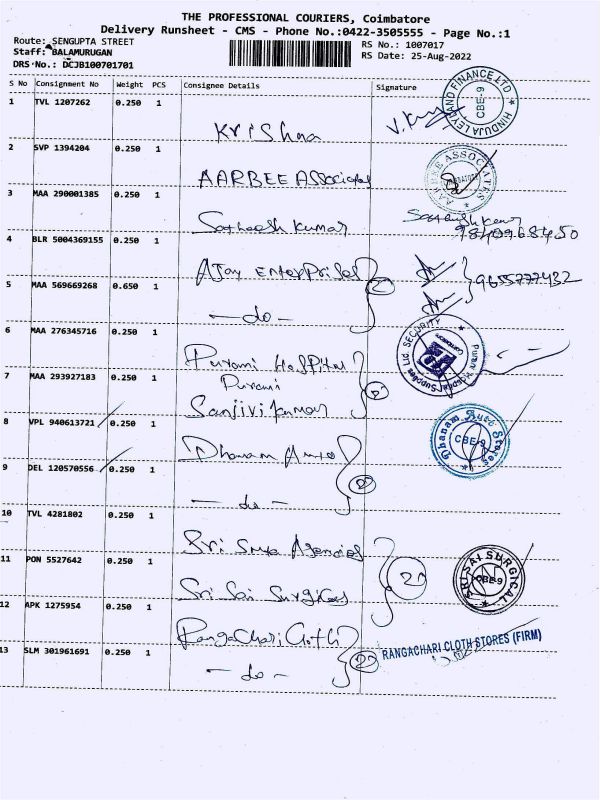 THE PROFESSIONAL COURIERS, Coimbatore
Delivery Runsheet - CMS - Phone No.:0422-3505555 - Page No.:1
Route: SENGUPTA STREET
RS No.: 1007017
Staff: BALAMURUGAN
RS Date: 25-Aug-2022
DRS No.: DCJB100701701
S No Consignment No Weight PCS Consignee Details Signature
1 TVL 1207262 0.250 1 Krishna
HINDUJA LEYLAND FINANCE LTD CBE-9
2 SVP 1394204 0.250 1 AARBEE Associates
AARBEE ASSOCIATES
3 MAA 290001385 0.250 1 Satheesh Kumar
4 BLR 5004369155 0.250 1 Ajay Enterprises
5 MAA 569669268 0.650 1 - do - 2
9655777432
6 MAA 276345716 0.250 1 Purami Hospital
Purami
7 MAA 293927183 0.250 1 Sanjivikumar 2
8 VPL 940613721 0.250 1 Dhanam Auto
Dhanam Auto Stores CBE-9
9 DEL 120570556 0.250 1 - do - 2
10 TVL 4281802 0.250 1 Sri Surya Agencies
11 PON 5527642 0.250 1 Sri Sai Surgicals 2
SRI SAI SURGICAL CBE-9
12 APK 1275954 0.250 1 Rangachari Cloth
RANGACHARI CLOTH STORES (FIRM)
13 SLM 301961691 0.250 1 - do - 2